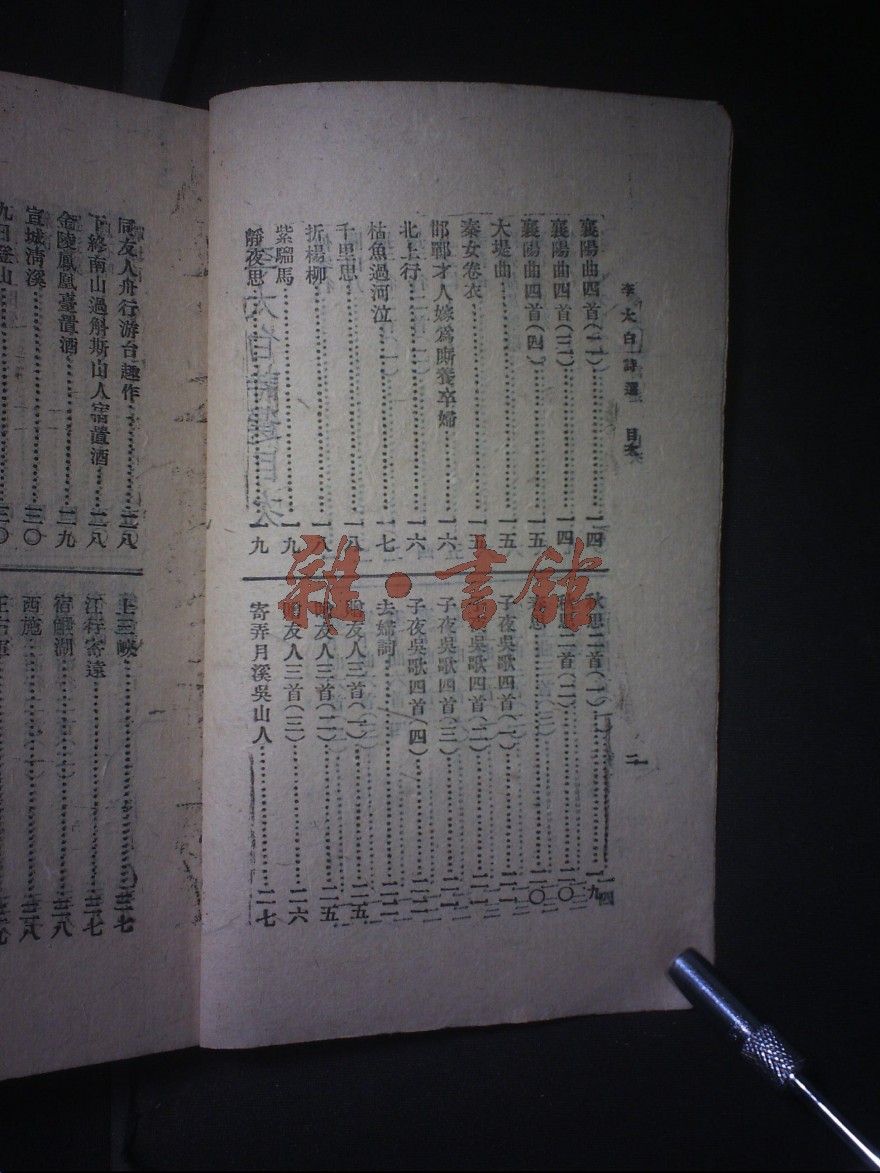 李太白詩選 目次
二
襄陽曲四首(二)……一四
襄陽曲四首(三)……一四
襄陽曲四首(四)……一五
大堤曲……一五
秦女卷衣……一五
邯鄲才人嫁爲厮養卒婦……一六
北上行……一六
枯魚過河泣……一七
千里思……一八
折楊柳……一八
紫騮馬……一九
靜夜思……一九
秋思二首(一)……一九
秋思二首(二)……二〇
春思……二〇
子夜吳歌四首(一)……二一
子夜吳歌四首(二)……二一
子夜吳歌四首(三)……二一
子夜吳歌四首(四)……二二
去婦詞……二二
贈友人三首(一)……二五
贈友人三首(二)……二五
贈友人三首(三)……二六
寄弄月溪吳山人……二七
同友人舟行游台越作……二八
下終南山過斛斯山人宿置酒……二八
金陵鳳凰臺置酒……二九
宣城清溪……三〇
九日登山……三〇
上三峽……三七
江行寄遠……三七
宿鰕湖……三八
西施……三八
王右軍
雜·書館